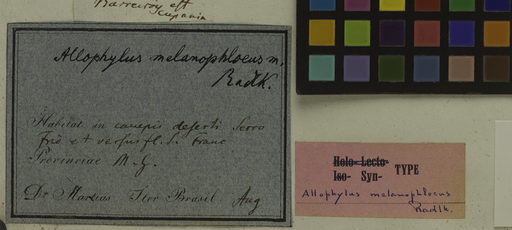 Cupania
Allophylus melanophloeus m.
Radlk.
Habitat in campis deserti Serro
Frio et versus fl. S. Franc
Provinciae M. G.
Dr Martius Iter Brasil Aug
Holo- Lecto-
Iso- Syn- TYPE
Allophylus melanophloeus
Radlk.